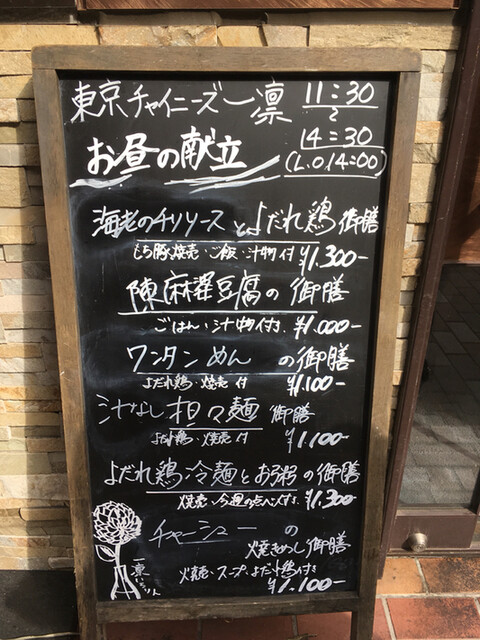 東京チャイニーズ一凛 11:30
〜
お昼の献立 14:30
(L.O 14:00)
海老のチリソースとよだれ鶏御膳
もち豚焼売・ご飯・汁物付 ¥1.300-
陳麻婆豆腐の御膳
ごはん・汁物付き. ¥1.000-
ワンタンめんの御膳
よだれ鶏・焼売付 ¥1.100-
汁なし担々麺御膳
よだれ鶏・焼売付 ¥1.100-
よだれ鶏冷麺とお粥の御膳
焼売・今週の点心付き. ¥1.300-
チャーシューの
焼きめし御膳
焼売・スープ・よだれ鶏付き
¥1.100-
一凛いちりん